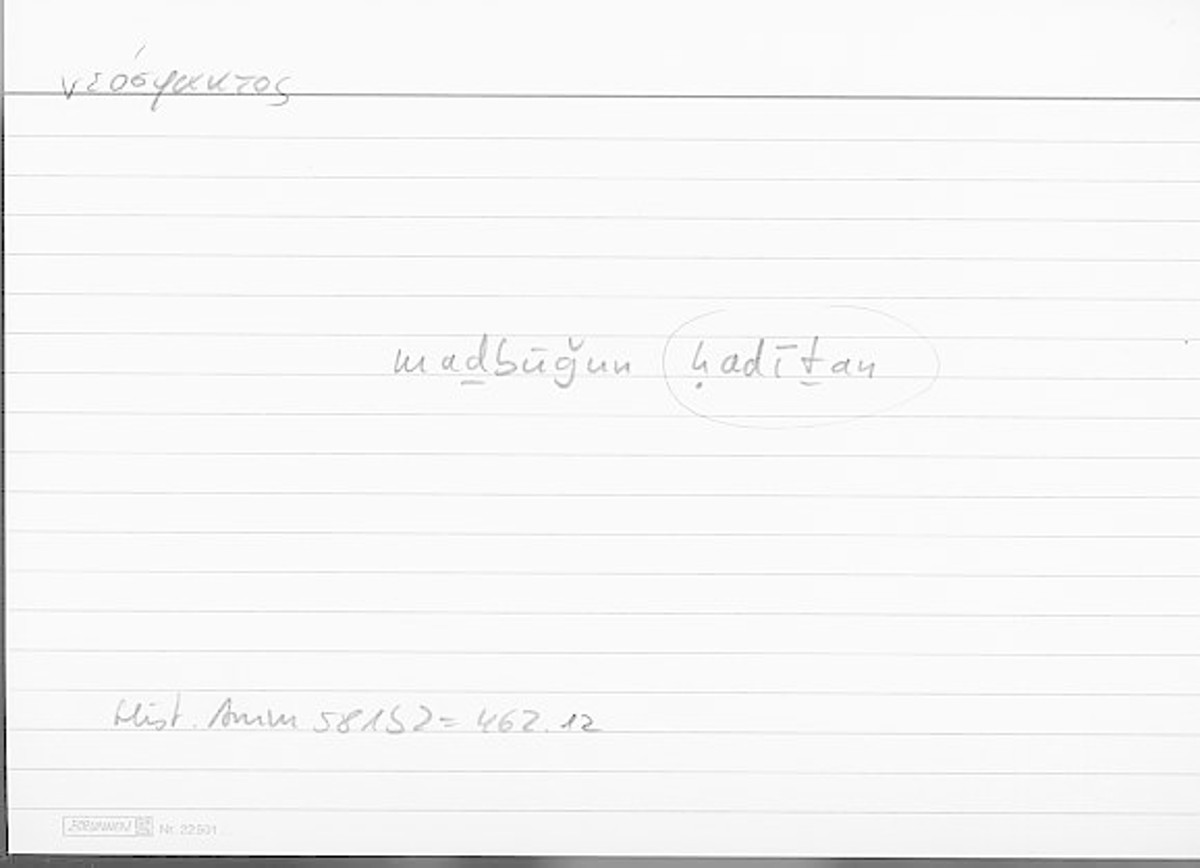 νεόσφακτος
maḏbūǧun ḥadīṯan
Hist. Anim 581b2 = 462.12
BRUNNEN Nr. 22501